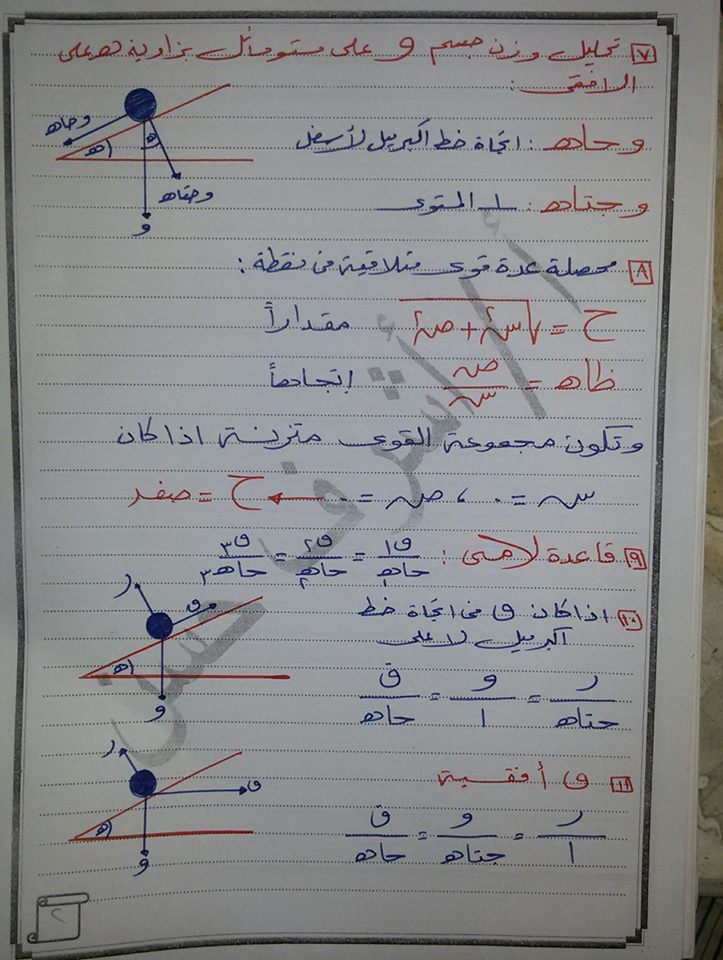 ٧ تحليل وزن جسم و على مستو مائل بزاوية هـ على
الافقى :
و حاهـ : اتجاة خط اكبر ميل لأسفل
و جتاهـ : ⊥ المستوى
و حاهـ
هـ
هـ
و حتاهـ
و
٨ محصلة عدة قوى متلاقية فى نقطة :
ح = √س٢ + ص٢ مقداراً
ظاهـ = ص/س إتجاهاً
وتكون مجموعة القوى متزنة اذا كان
س = ٠ ، ص = ٠ ← ح = صفر
٩ قاعدة لامى : ق١/حاهـ١ = ق٢/حاهـ٢ = ق٣/حاهـ٣
١٠ اذا كان ق فى اتجاة خط
اكبر ميل لاعلى
ر/جتاهـ = و/١ = ق/حاهـ
ر
ق
هـ
و
١١ ق أفقية
ر/١ = و/جتاهـ = ق/حاهـ
ر
ق
هـ
و
أ/أشرف حسن
٢